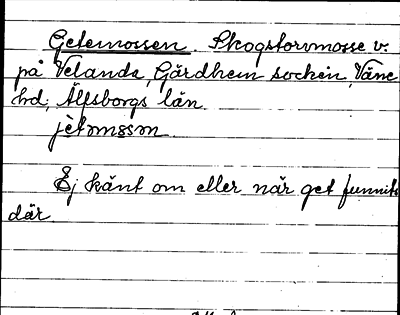 Getemossen. Skogstorvmosse v.
på Velanda, Gärdhem socken, Väne
hd, Älfsborgs län
jètmɷsɷn
Ej känt om eller när get funnits
där